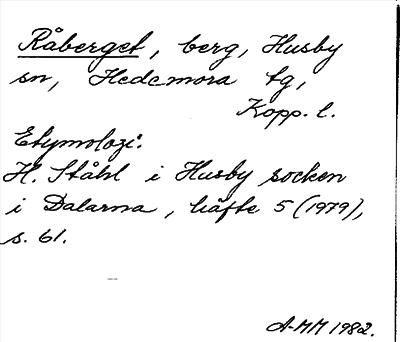 Råberget, berg, Husby
sn, Hedemora tg,
Kopp. l.
Etymologi:
H. Ståhl i Husby socken
i Dalarna, häfte 5 (1979),
s. 61.
A-MM 1982.